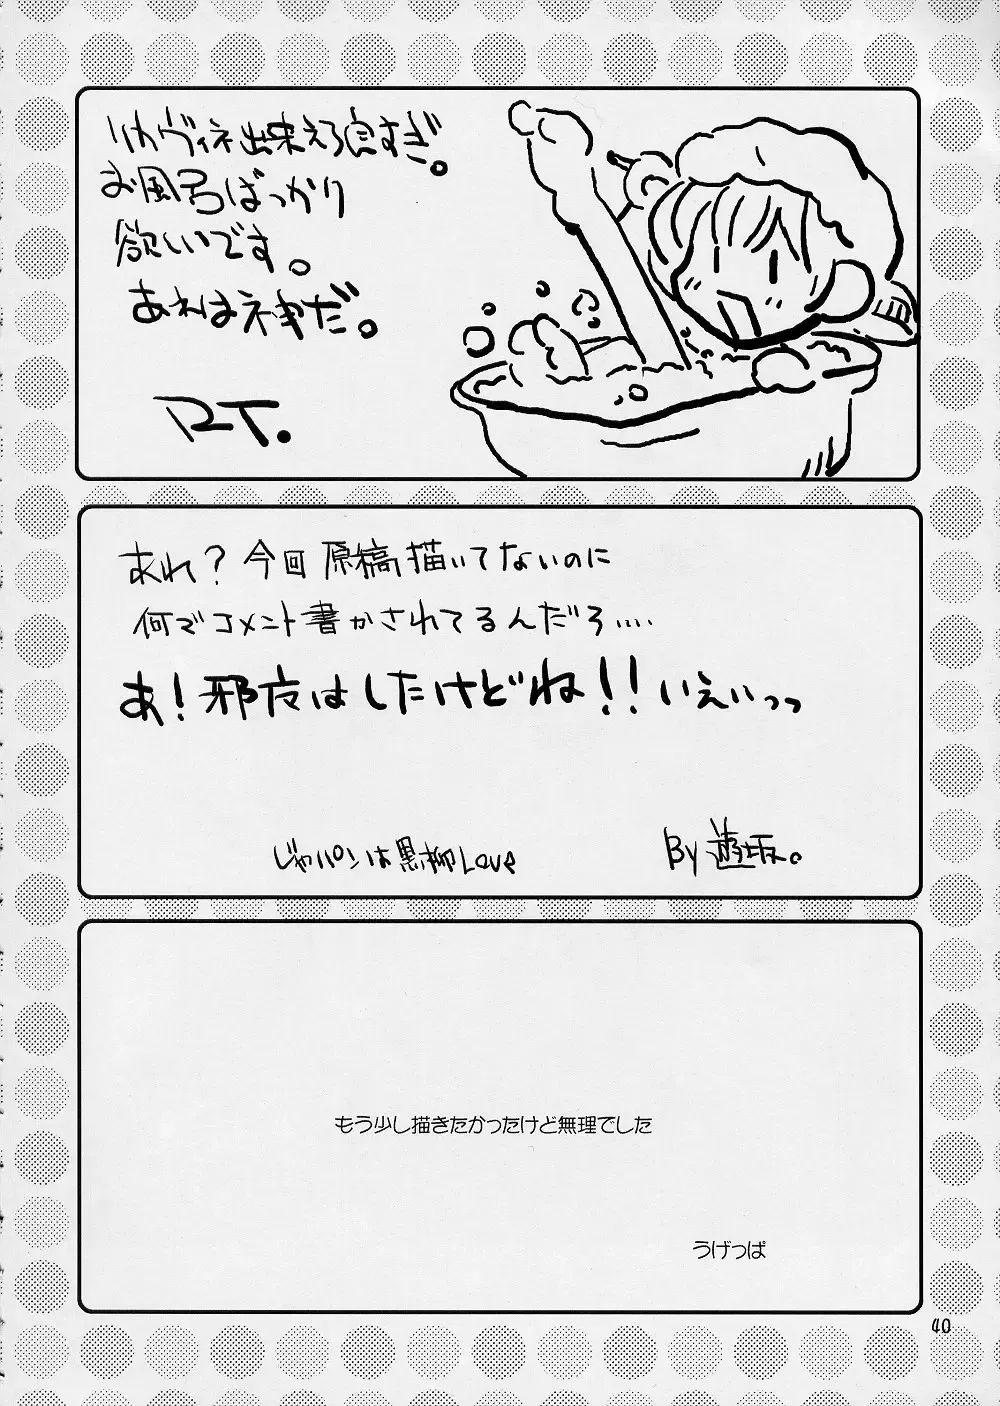 リカヴィネ出来えろ良すぎ。
お風呂ばっかり
欲しいです。
あれは神だ。
RT.
あれ?今回原稿描いてないのに
何でコメント書かされてるんだろ‥‥
あ!邪魔はしたけどね!!いえぃっっ
じゃパンは黒柳Love
By 遊坂。
もう少し描きたかったけど無理でした
うげっぱ
40